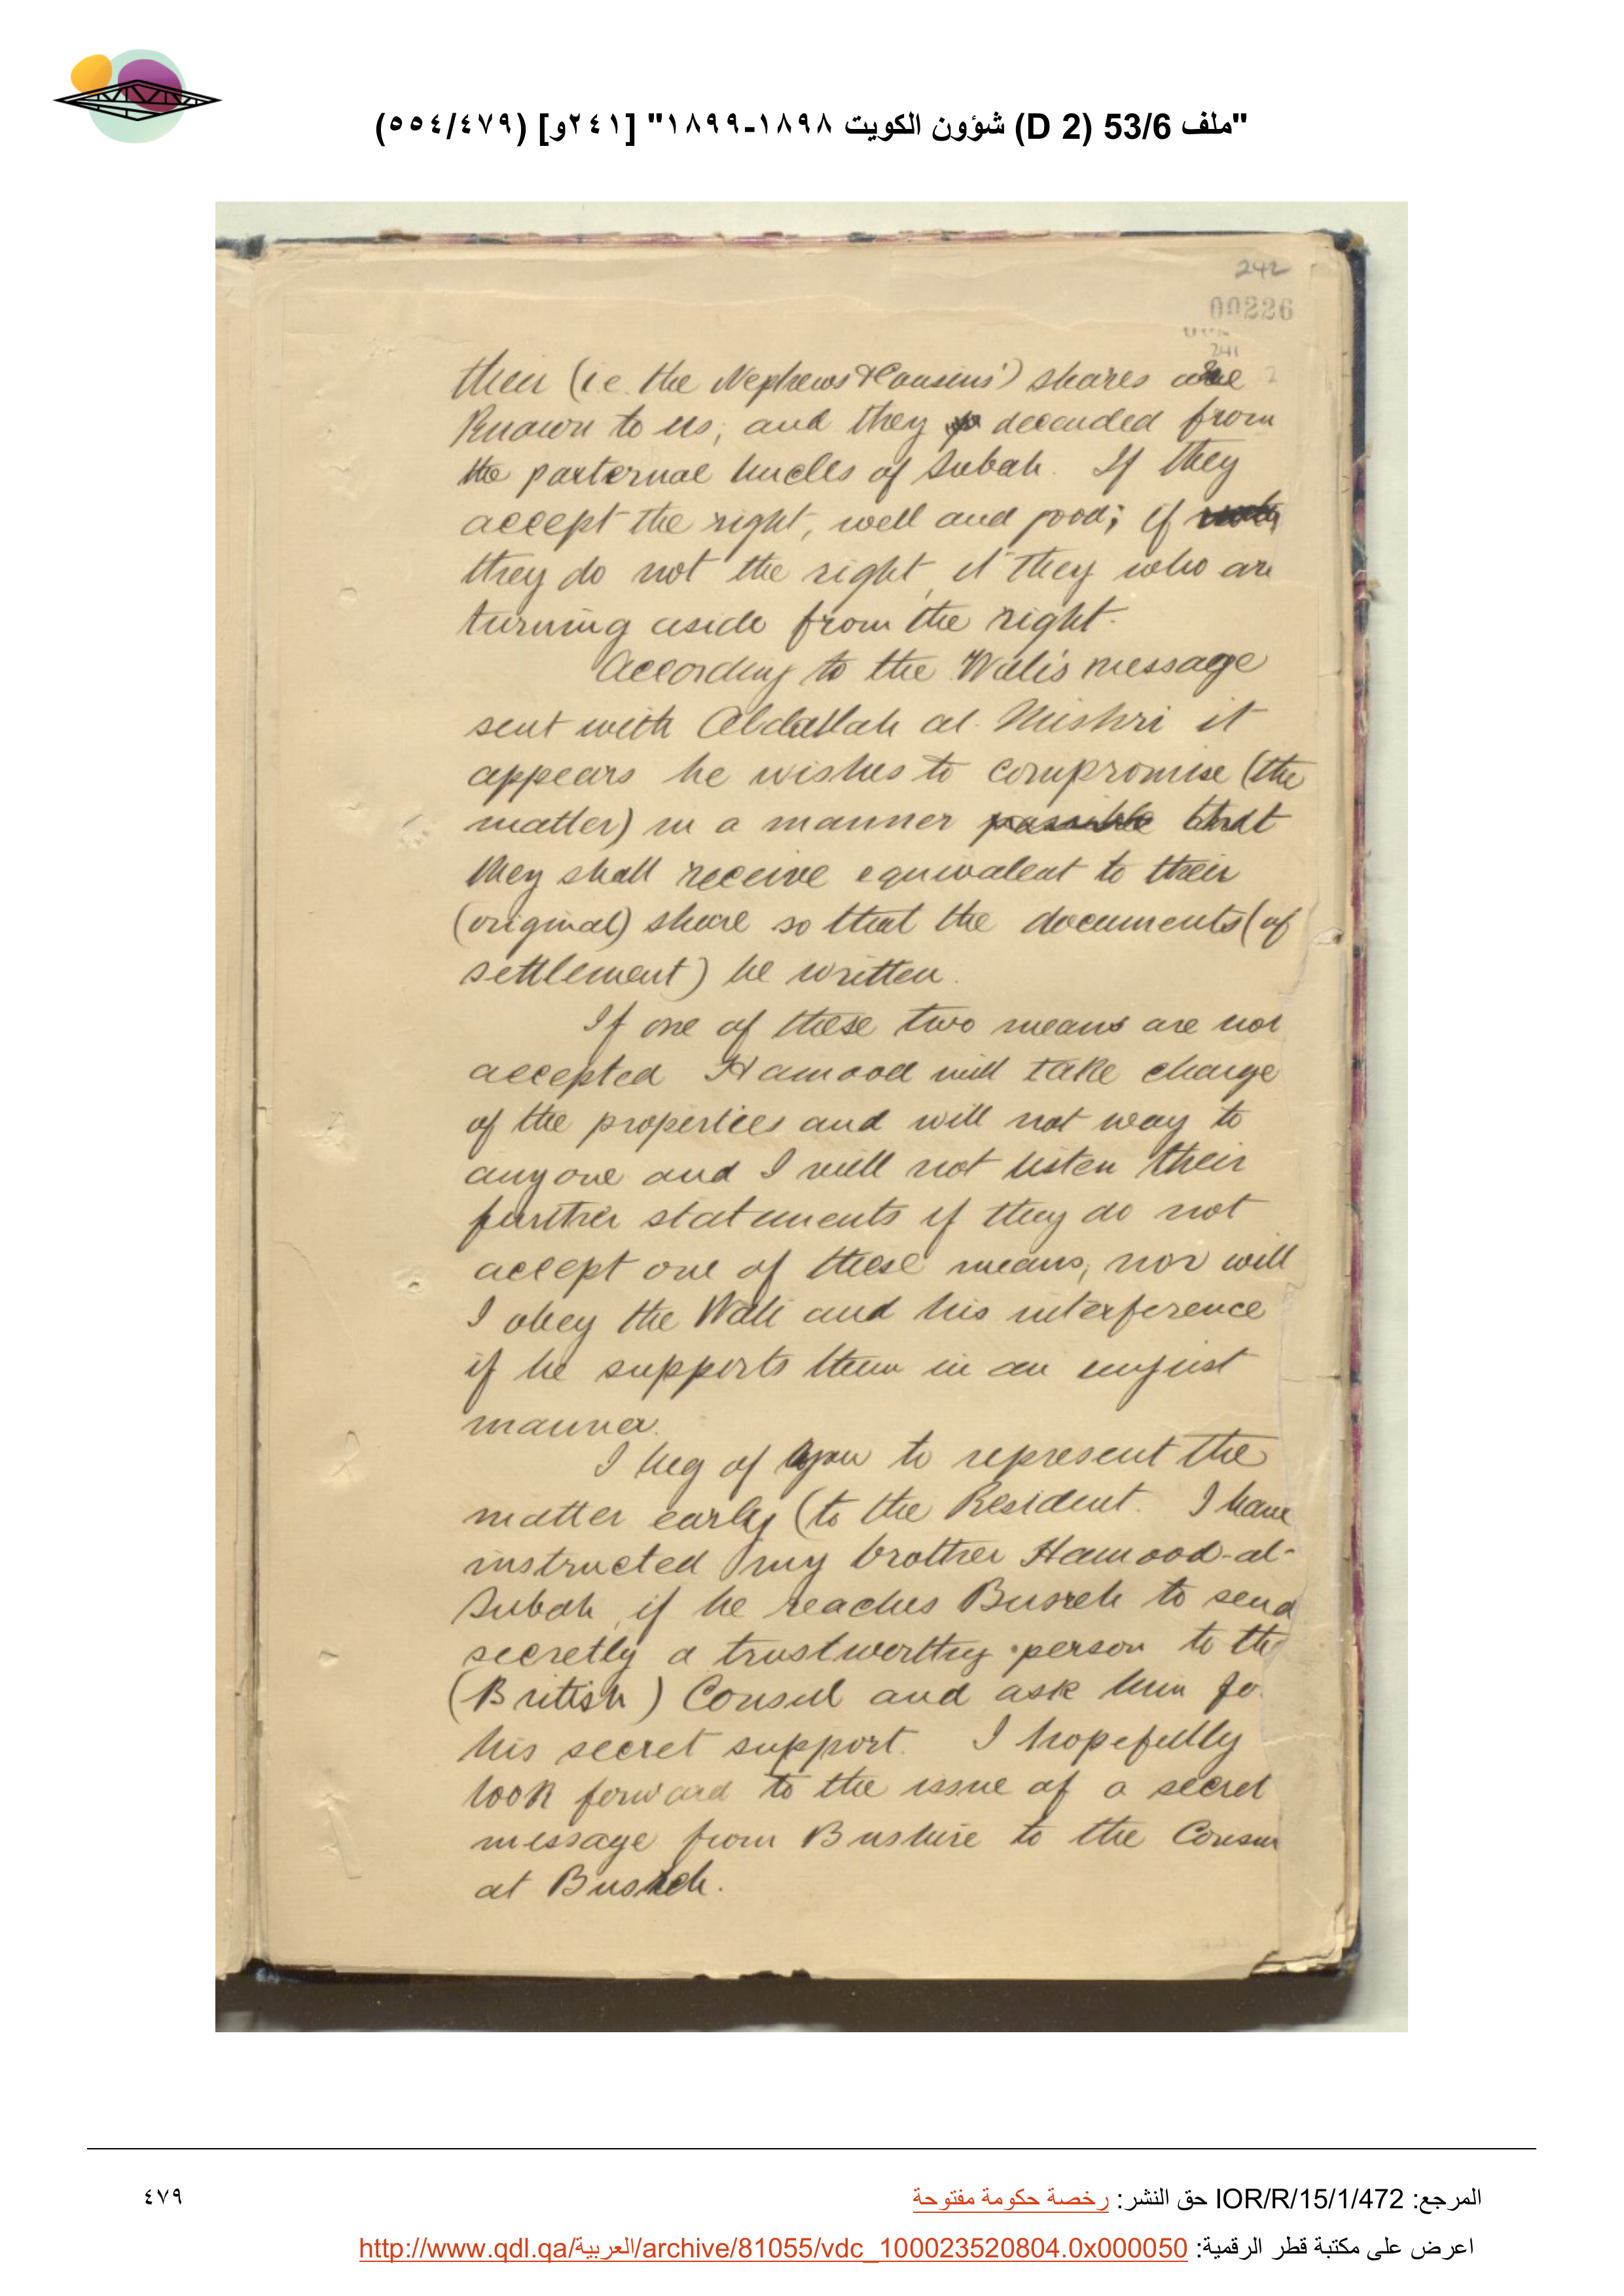 "ملف 53/6 (D 2) شؤون الكويت ١٨٩٨-١٨٩٩" [٢٤١و] (٥٥٤/٤٧٩)
242
00226
241
their (i.e. the Nephews & Cousins') shares are
known to us, and they decended from
the paxternal Uncles of Subah. If they
accept the right, well and good; if
they do not the right, it they who are
turning aside from the right.
According to the Wali's message
sent with Abdallah al-Mishri it
appears he wishes to compromise (the
matter) in a manner possible that
they shall receive equivalent to their
(original) share so that the documents (of
settlement) be written.
If one of these two means are not
accepted Hamood will take charge
of the properties and will not way to
anyone and I will not listen their
further statements if they do not
accept one of these means, nor will
I obey the Wali and his interference
if he supports them in an unjust
manner.
I beg of you to represent the
matter early (to the Resident. I have
instructed my brother Hamood-al-
Subah, if he reaches Busreh to send
secretly a trustworthy person to the
(British) Consul and ask him fo
his secret support. I hopefully
look forward to the issue of a secret
message from Bushire to the Consu
at Busreh.
المرجع: IOR/R/15/1/472 حق النشر: رخصة حكومة مفتوحة
٤٧٩
اعرض على مكتبة قطر الرقمية: http://www.qdl.qa/العربية/archive/81055/vdc_100023520804.0x000050